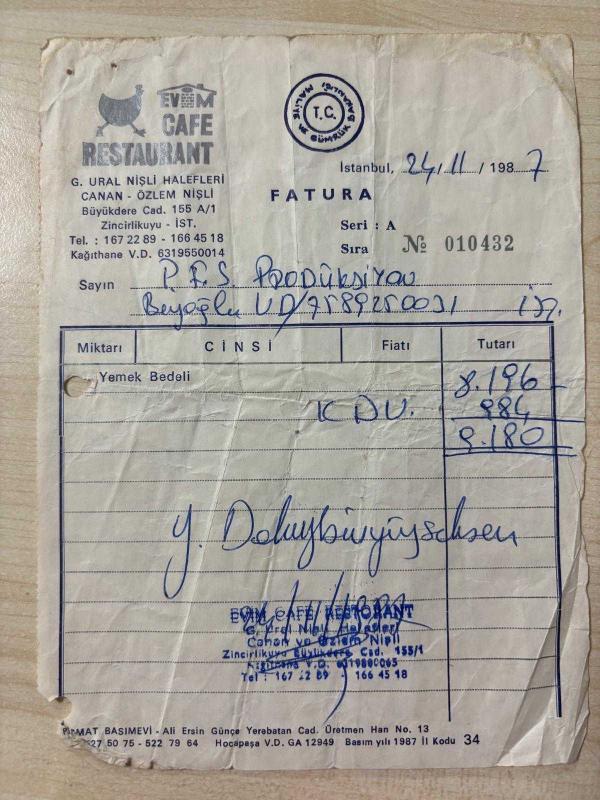 EVİM
CAFE
RESTAURANT
G. URAL NİŞLİ HALEFLERİ
CANAN - ÖZLEM NİŞLİ
Büyükdere Cad. 155 A/1
Zincirlikuyu - İST.
Tel. : 167 22 89 - 166 45 18
Kağıthane V.D. 6319550014
T.C.
MALİYE VE GÜMRÜK BAKANLIĞI
İstanbul, 24/11/1987
FATURA
Seri : A
Sıra № 010432
Sayın P.F.S PRODÜKSİYON
Beyoğlu VD/7589250031 İST.
Miktarı CİNSİ Fiatı Tutarı
Yemek Bedeli 8.196
KDV. 984
9.180
Y.
EVİM CAFE RESTORANT
G. Ural Nişli Halefleri
Canan ve Özlem Nişli
Zincirlikuyu Büyükdere Cad. 155/1
Kağıthane V.D.
Tel : 167 22 89 - 166 45 18
MAT BASIMEVİ - Ali Ersin Günçe Yerebatan Cad. Üretmen Han No. 13
27 50 75 - 522 79 64 Hocapaşa V.D. GA 12949 Basım yılı 1987 İl Kodu 34